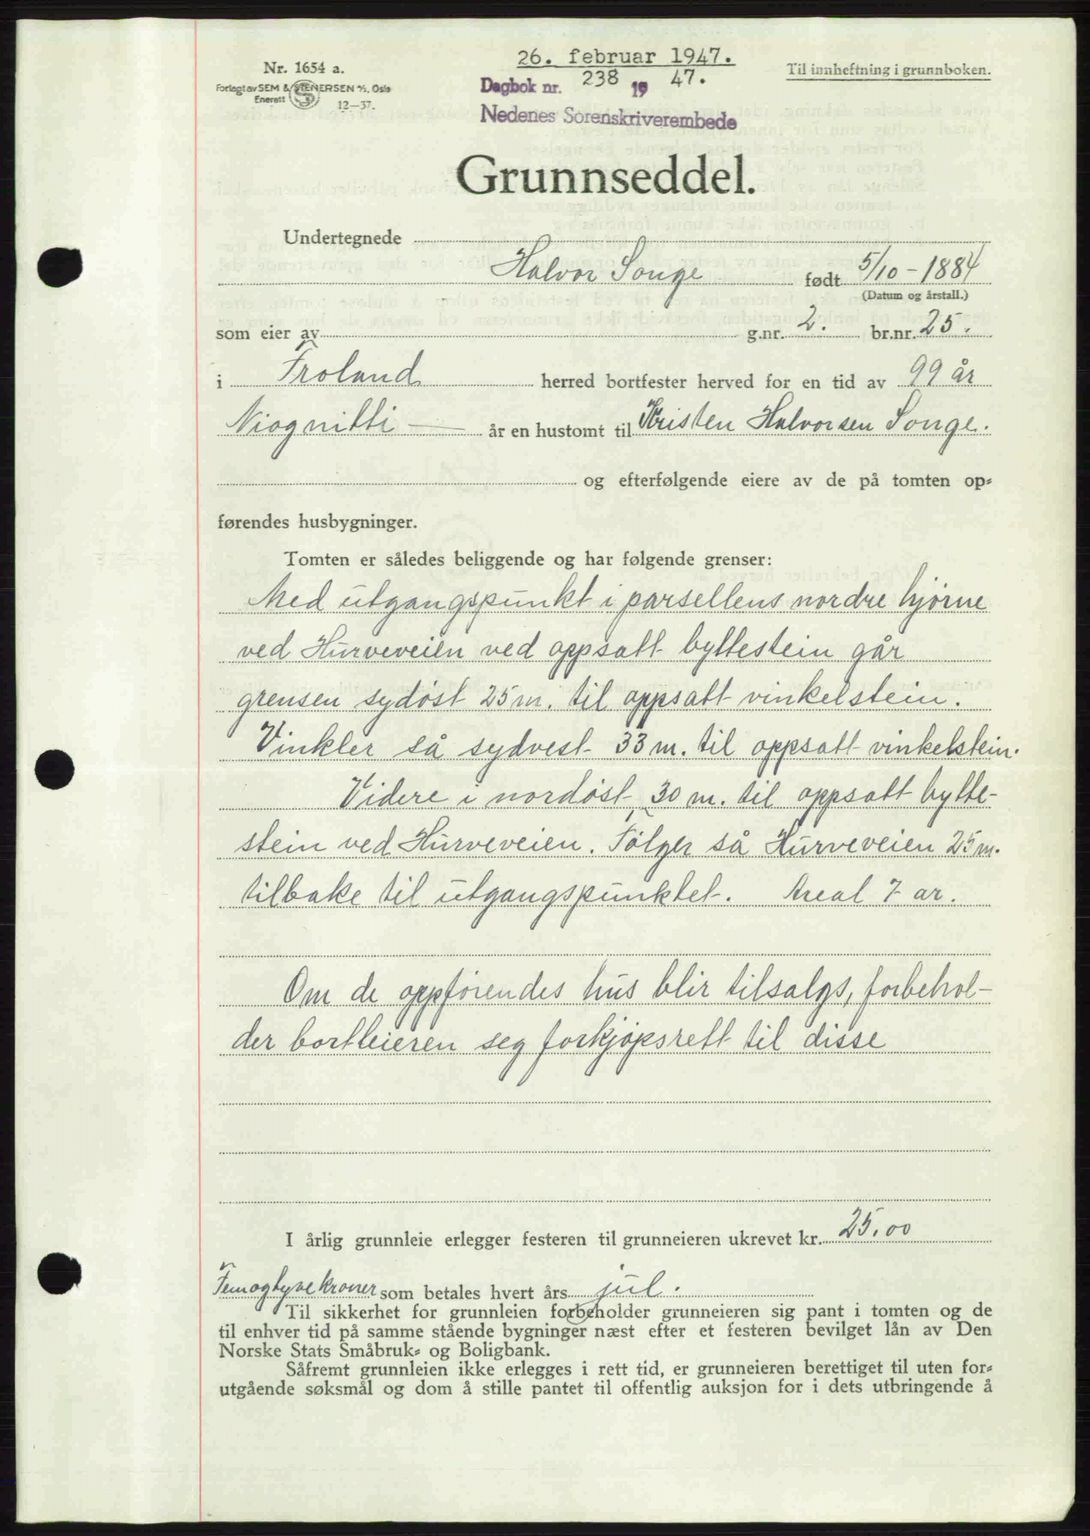 26. februar 1947.
Nr. 1654 a.
Til innheftning i grunnboken.
Forlagt av SEM & STENERSEN A/S, Oslo
Enerett
12-37.
Dagbok nr. 238 1947.
Nedenes Sorenskriverembede
Grunnseddel.
Undertegnede
Halvor Songe født 5/10-1884
(Datum og årstall.)
som eier av g.nr. 2. br.nr. 25.
i Froland herred bortfester herved for en tid av 99 år
Niognitti — år en hustomt til Kristen Halvorsen Songe.
og efterfølgende eiere av de på tomten op-
førendes husbygninger.
Tomten er således beliggende og har følgende grenser:
Med utgangspunkt i parsellens nordre hjørne
ved Hurveveien ved oppsatt byttestein går
grensen sydøst 25 m. til oppsatt vinkelstein.
Vinkler så sydvest 33 m. til oppsatt vinkelstein.
Videre i nordøst, 30 m. til oppsatt bytte-
stein ved Hurveveien. Følger så Hurveveien 25 m.
tilbake til utgangspunktet. Areal 7 ar.
Om de oppførendes hus blir tilsalgs, forbehol-
der bortleieren seg forkjøpsrett til disse
I årlig grunnleie erlegger festeren til grunneieren ukrevet kr. 25.00
Femogtyve kroner som betales hvert års jul.
Til sikkerhet for grunnleien forbeholder grunneieren sig pant i tomten og de
til enhver tid på samme stående bygninger næst efter et festeren bevilget lån av Den
Norske Stats Småbruk- og Boligbank.
Såfremt grunnleien ikke erlegges i rett tid, er grunneieren berettiget til uten for-
utgående søksmål og dom å stille pantet til offentlig auksjon for i dets utbringende å